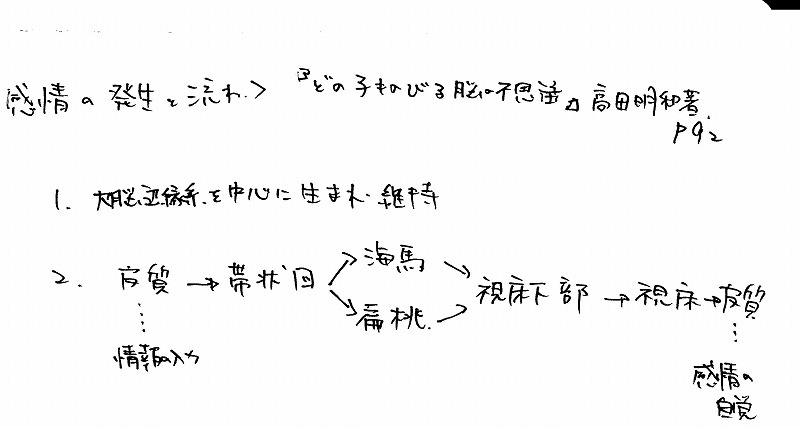 感情の発生と流れ> 『どの子ものびる脳の不思議』高田明和著
p92
1. 大脳辺縁系を中心に生まれ・維持
2. 皮質→帯状回→海馬→視床下部→視床→皮質
→扁桃→
情報の入力
感情の
自覚